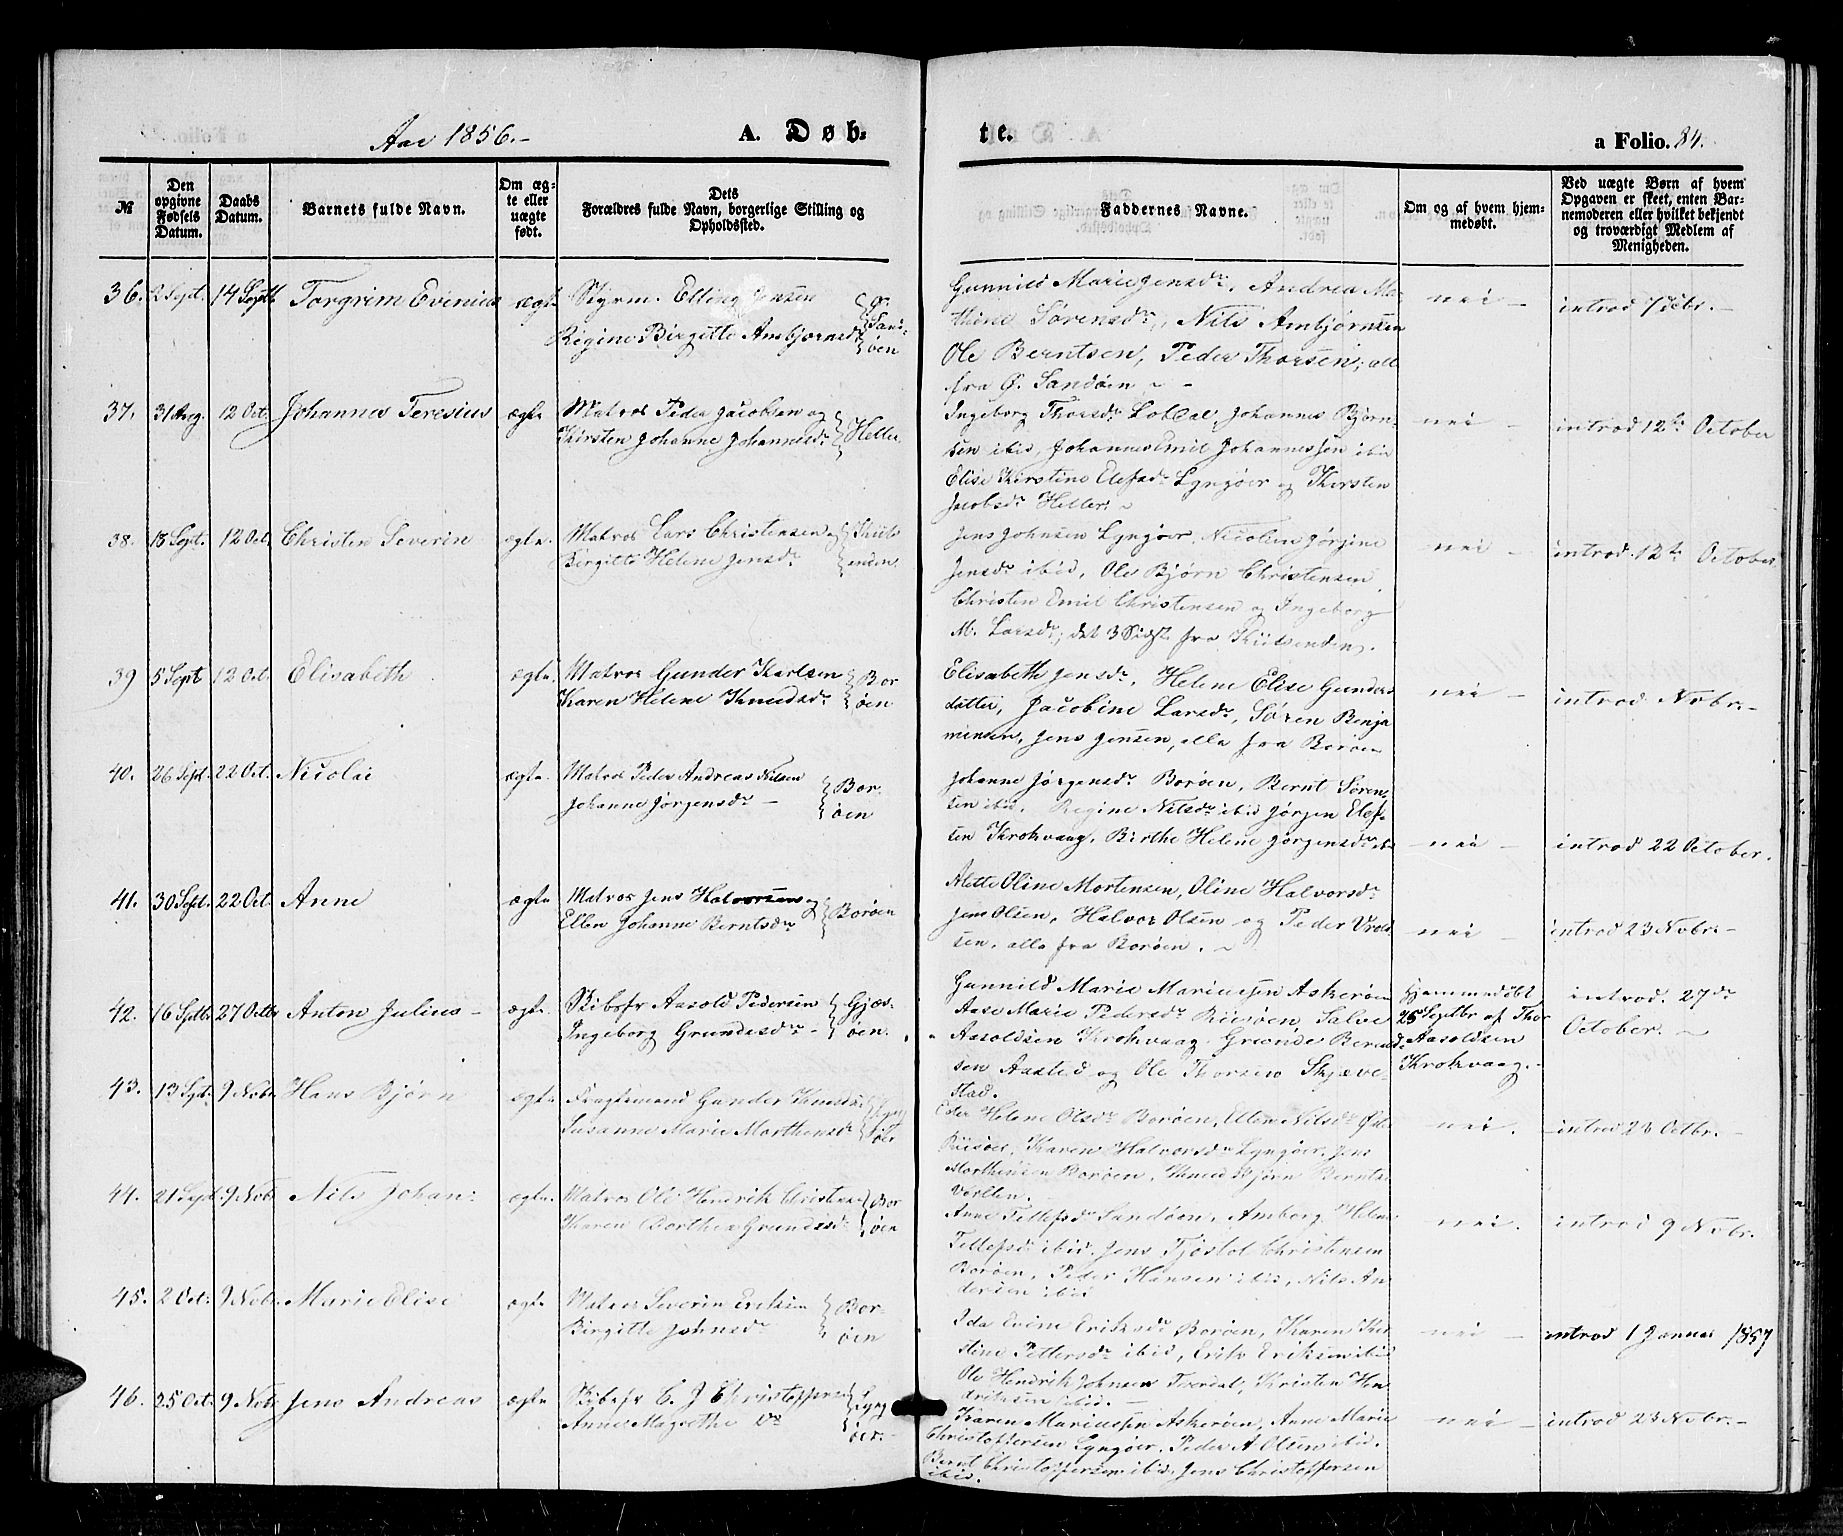 Aar 1856.-
A. Døb-
te.
a Folio. 84.
№
Den opgivne Fødsels Datum.
Daabs Datum.
Barnets fulde Navn.
Om ægte eller uægte født.
Dets Forældres fulde Navn, borgerlige Stilling og Opholdssted.
Faddernes Navne.
Om og af hvem hjemmedøbt.
Ved uægte Børn af hvem Opgaven er skeet, enten Barnemoderen eller hvilket bekjendt og troværdigt Medlem af Menigheden.
36. 2 Sept. 14 Septb. Torgrim Evenius ægte Styrm. Elling Jensen
Regine Birgitte Ambjørnsdr
Ø. Sandøen
Gunnild Marie Jensdr, Andrea Ma-
thine Sørensdr, Nils Ambjørnsen
Ole Berntsen, Peder Thorsen, alle
fra Ø. Sandøen
nei -
introd 7 Decbr. -
37. 31 Aug. 12 Oct. Johannes Teresius ægte Matros Peder Jacobsen og
Kirsten Johanne Johannesdr
Helle
Ingeborg Thorsdr Lobdal, Johannes Bjørn-
sen ibid, Johannes Emil Johannessen ibid
Elise Kirstine Elefsdr Lyngøer og Kirsten
Jacobsdr Helle. -
nei -
introd 12te October
38. 18 Sept. 12 Oct. Christen Severin ægte. Matros Lars Christensen og
Birgitte Helene Jensdr
Jens Johnsen Lyngøer, Nicoline Jørgine
Jensdr ibid, Ole Bjørn Christensen
Christen Emil Christensen og Ingeborg
M. Larsdr, det 3 Sidst fra
nei -
introd. 12te October
39 5 Sept 12 Oct. Elisabeth ægte. Matros Gunder Karlsen
Karen Helene Knudsdr
Borøen
Elisabeth Jensdr, Helene Elise Gunders
datter, Jacobine Larsdr, Søren Benja
minsen, Jens Jensen, alle fra Borøen
nei -
introd Nobr. -
40. 26 Sept. 22 Oct. Nicolai ægte. Matros Peder Andreas Nilsen
Johanne Jørgensdr -
Borøen
Johanne Jørgensdr Borøen, Bernt Søren-
sen ibid. Regine Nilsdr ibid Jørgen Elef-
sen Krokvaag, Birthe Helene Jørgensdr ibid
nei -
introd 22 October.
41. 30 Sept. 22 Oct. Anne ægte Matros Jens Halvorsen og
Ellen Johanne Berntsdr
Borøen
Alette Oline Mortensen, Oline Halvorsdr
Jens Olsen, Halvor Olsen og Peder Vrold
sen, alle fra Borøen. -
nei -
introd 23 Nobr. -
42. 16 Septbr. 27 Octbr Anton Julius - ægte. Skibsfr Aasold Pedersen
Ingeborg Grundesdr -
Gjæsøen.
Gunnild Marie Mariussen Askerøen
Aase Marie Pedersdr Riisøen, Salve
Aasoldsen Krokvaag. Grunde Berend-
sen Aasted og Ole Thorsen Skjæve-
stad.
Hjemmedøbt
25 Septbr af Thor
Aasoldsen
Krokvaag. -
introd. 27de
October. -
43. 13 Sept. 9 Nobr Hans Bjørn ægte Fragtemand Gunder Knudsen
Susanne Marie Morthensdr
Lyngøer
Helene Olsdr Borøen, Ellen Nilsdr Øster
Riisøer, Karen Halvorsdr Lyngøer, Jens
Morthensen Borøen, Knud Bjørn Bernts.
nei.
introd 23 Octbr. -
44. 21 Sept. 9 Nob. Nils Johan ægte. Matros Ole Hendrik Christensen
Karen Borthea Grundesdr
Borøen
Anne Tellefsdr Sandøen, Amborg Helene
Tellefsdr ibid. Jens Tjøstol Christensen
Borøen, Peder Hansen ibid, Nils An
dersen ibid
nei.
introd 9 Nobr.
45. 2 Oct. 9 Nobr. Marie Elise ægte Matros Severin Eriksen
Birgitte Johnsdr
Borøen
Ida Evine Eriksdr Borøen, Karen Kir
stine Pettersdr ibid, Erik Eriksen ibid
Ole Hendrik Johnsen Tverdal, Kristen Hen
driksen ibid. -
nei -
introd 1 Januar 1857
46. 25 Oct. 9 Nob. Jens Andreas ægte Skibsfr C. J Christophersen
Anne Magrethe
Lyngøer. -
Karen Mariussen Askerøen, Anne Marie
Christophersen Lyngøer. Peder A Olsen ibid.
Bernt Christophersen ibid, Jens Christophersen
ibid.
nei -
introd 23 Nobr. -